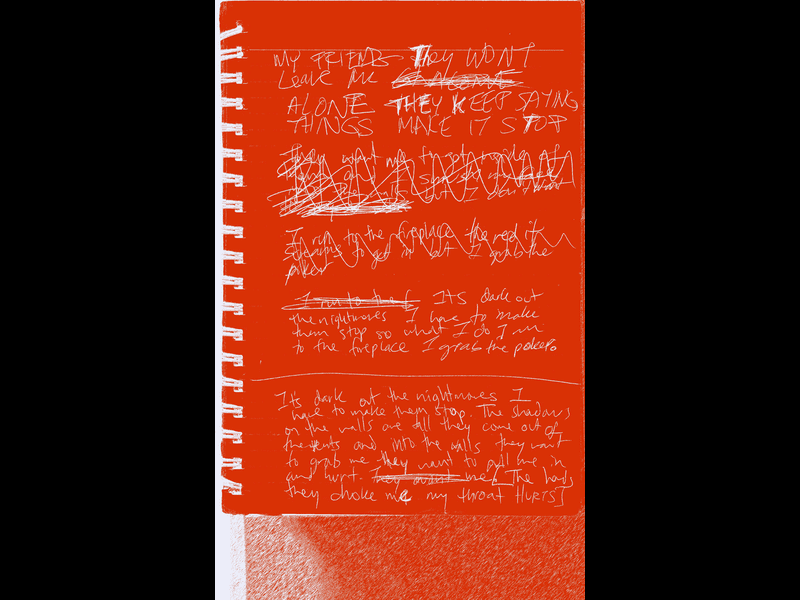 MY FRIENDS They WONT
Leave Me
ALONE THEY KEEP SAYING
THINGS MAKE IT STOP
They want me to get inside of
but I don't want
I run to the fireplace the red it
screams to get in but I grab the
poker
I run to the f Its dark out
the nightmares I have to make
them stop so what I do I run
to the fireplace I grab the poker
Its dark out the nightmares I
have to make them stop. The shadows
on the walls are tall they come out of
the vents and into the walls they want
to grab me they want to pull me in
and hurt. They want me [The hands
they choke me my throat HURTS]